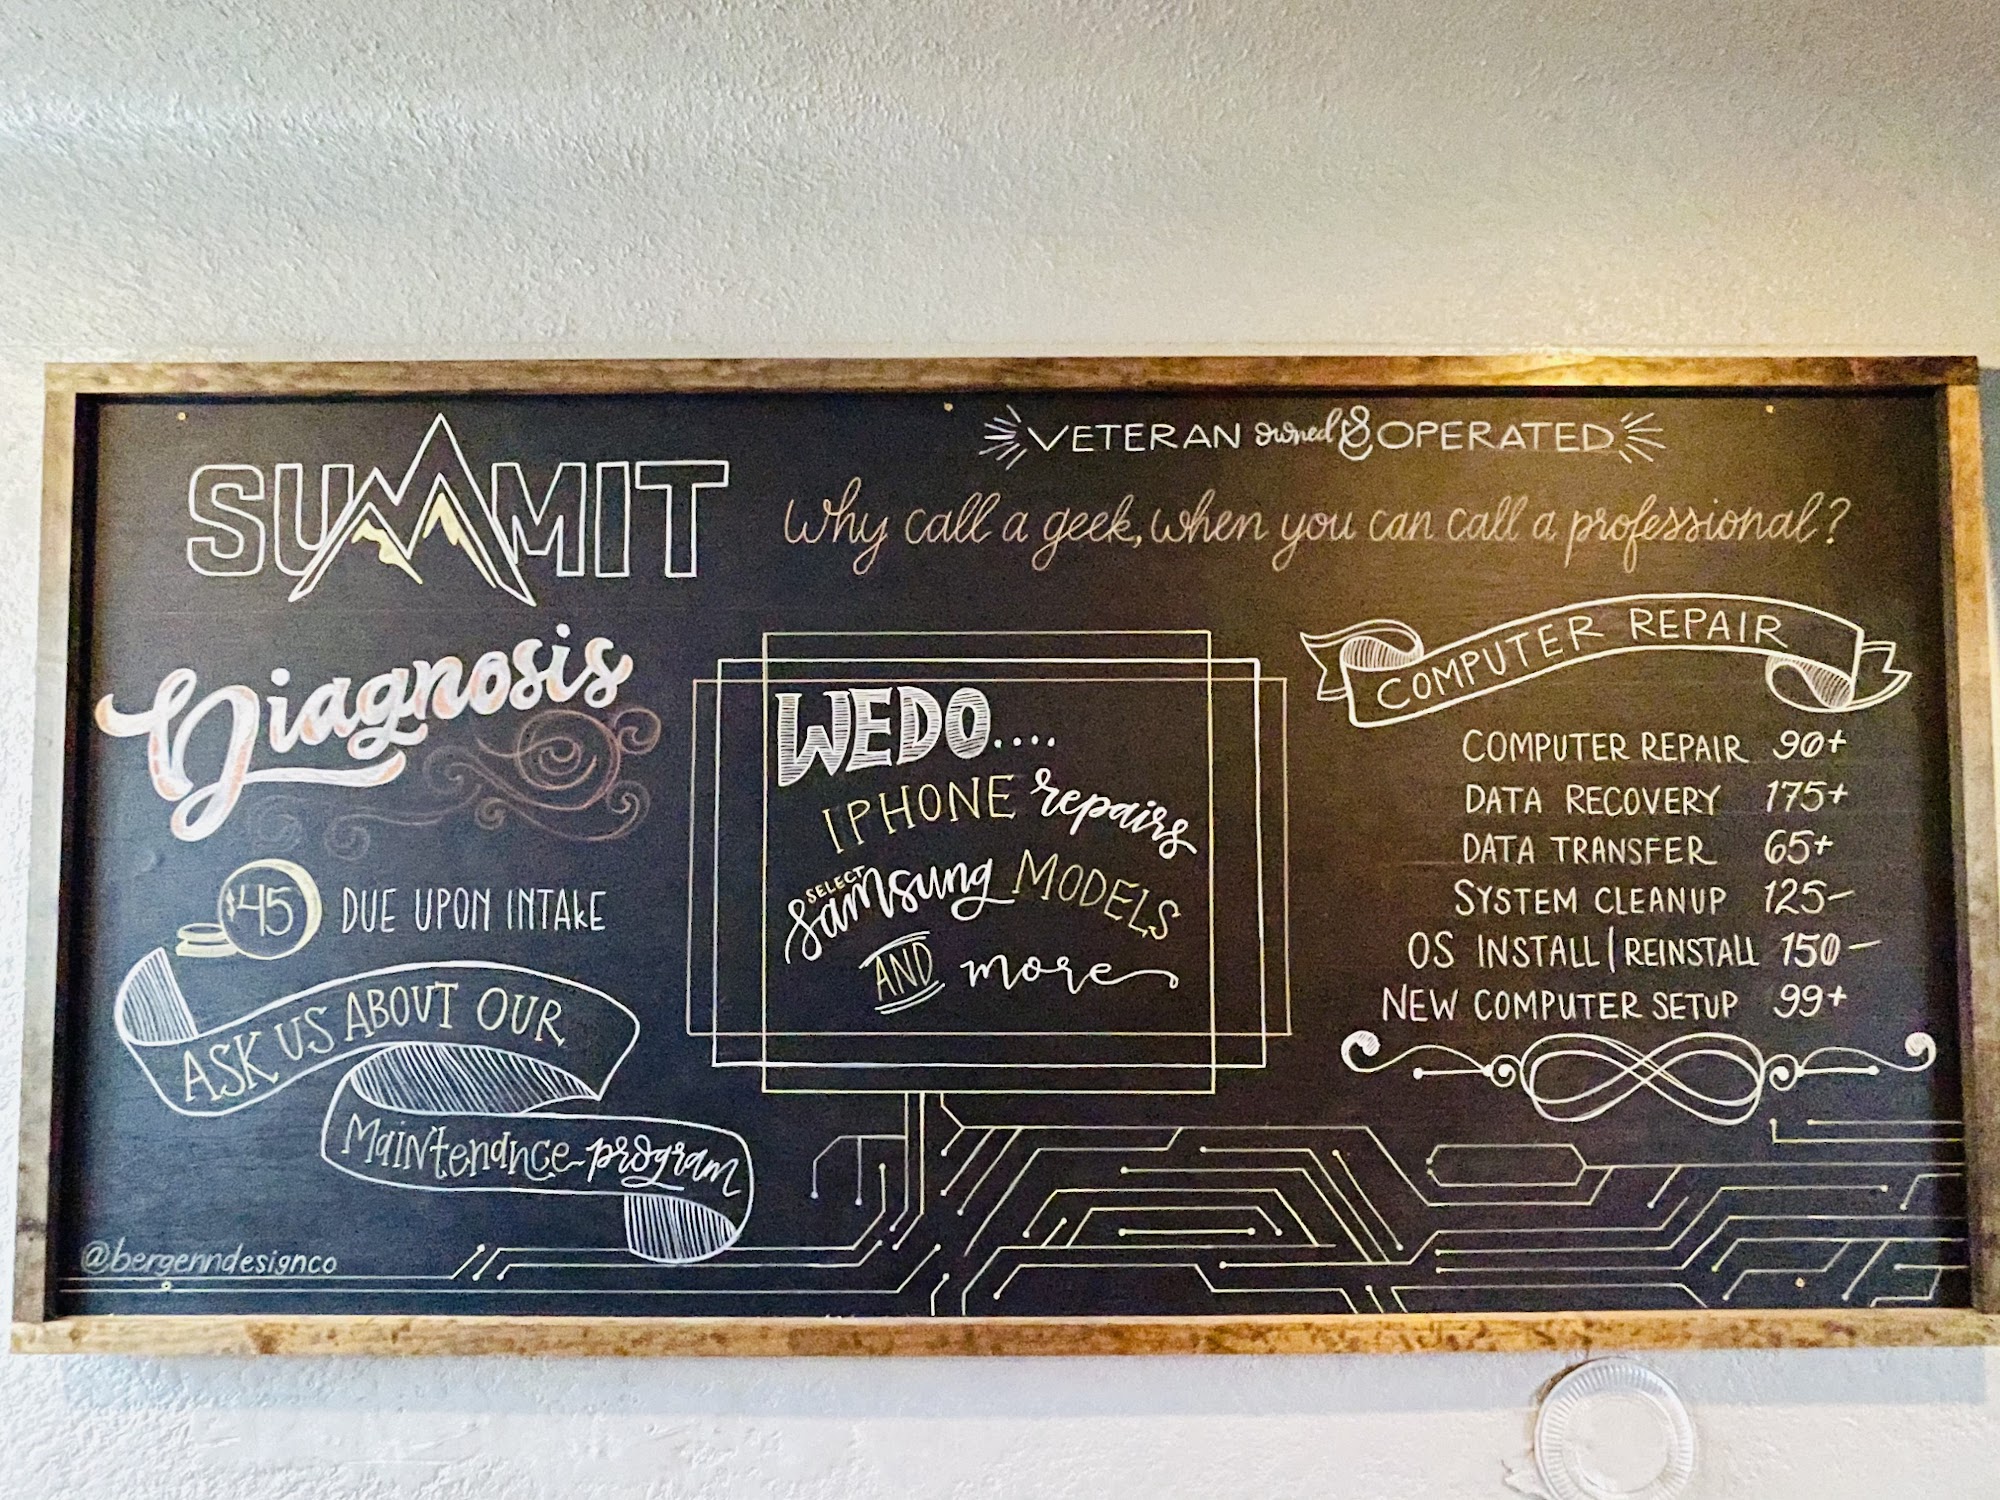 SUMMIT
VETERAN owned & OPERATED
Why call a geek, when you can call a professional?
Diagnosis
$45 DUE UPON INTAKE
ASK US ABOUT OUR
Maintenance program
@bergenndesignco
WE DO....
IPHONE repairs
SELECT
Samsung MODELS
AND more
COMPUTER REPAIR
COMPUTER REPAIR 90+
DATA RECOVERY 175+
DATA TRANSFER 65+
SYSTEM CLEANUP 125-
OS INSTALL|REINSTALL 150-
NEW COMPUTER SETUP 99+